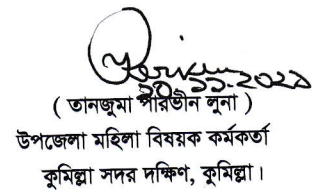 ২০.১১.২০২১
( তানজুমা পারভীন লুনা )
উপজেলা মহিলা বিষয়ক কর্মকর্তা
কুমিল্লা সদর দক্ষিণ, কুমিল্লা।